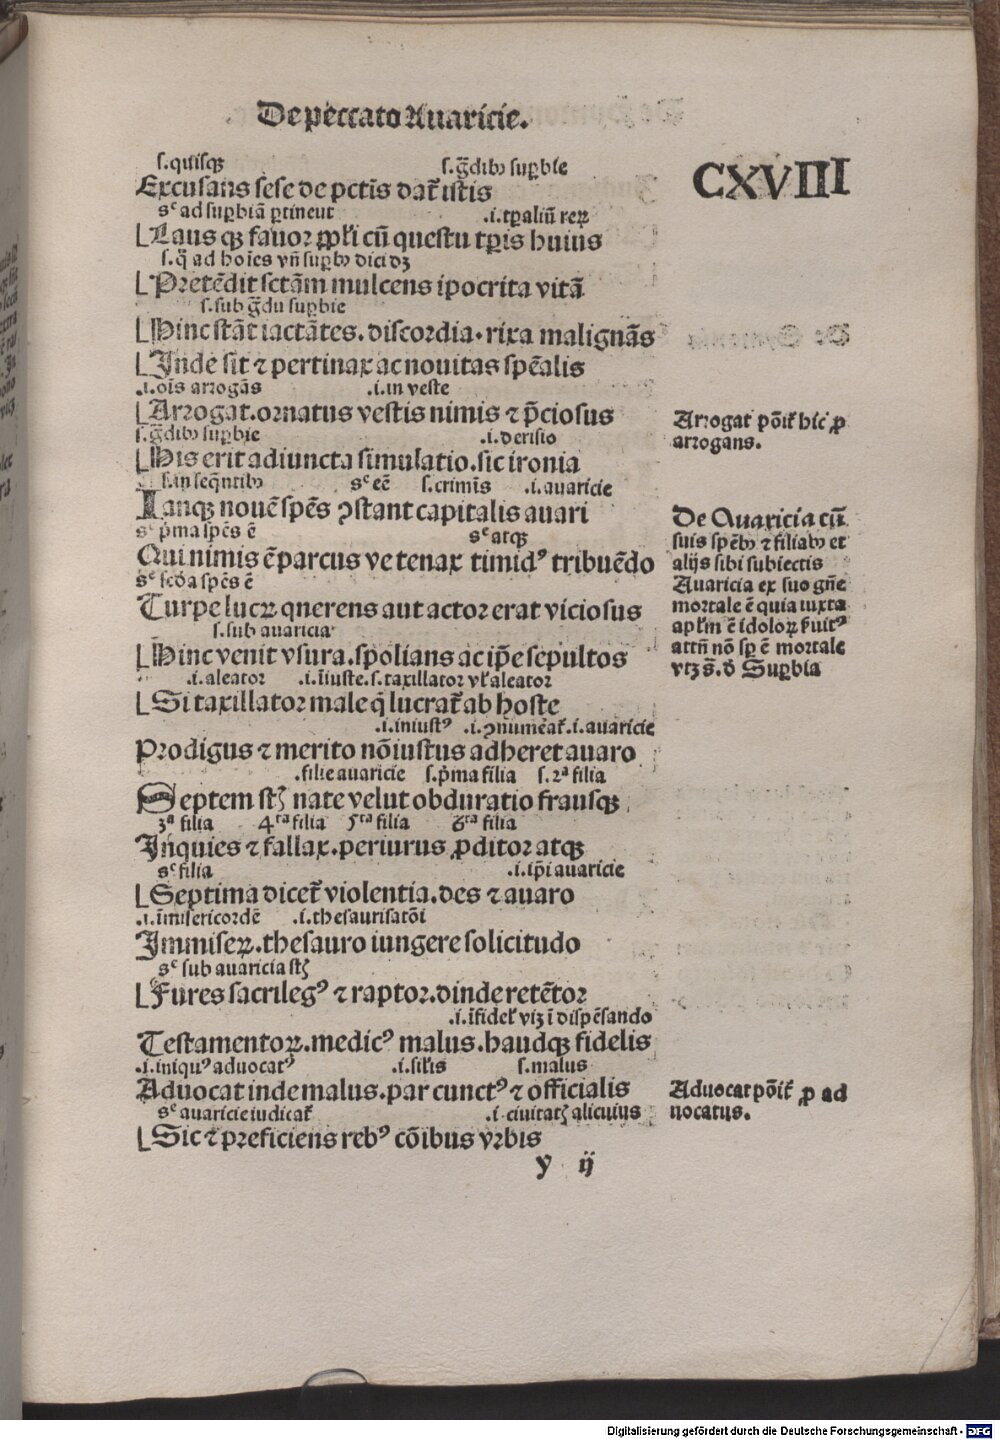 De peccato Auaricie.
CXVIII
s.quisqꝫ s.g̃dibꝰ suꝑbie
Excusans sese de pctīs dat̃ istis
sᶜ ad suꝑbiā ꝑtinent .i.tꝑaliū reꝝ
Laus qꝫ fauor ꝓpl̃i cū questu tꝑis huius
s.q̄ ad hoīes vñ suꝑbꝰ dici dꝫ
Pretēdit sctām mulcens ipocrita vitā
s.sub g̃du suꝑbie
Hinc stāt iactātes.discordia.rixa malignās
Inde sit ⁊ pertinax ac nouitas spēalis
.i.oīs arrogās .i.in veste
Arrogat.ornatus vestis nimis ⁊ p̄ciosus
s.g̃dibꝰ suꝑbie .i.derisio
His erit adiuncta simulatio.sic ironia
s.in seq̄ntibꝰ sᶜ eē s.crimīs .i.auaricie
Ianqꝫ nouē spēs ꝯstant capitalis auari
sᶜ p̄ma spēs ē sᶜ atqꝫ
Qui nimis ē parcus ve tenax timidꝰ tribuēdo
sᶜ scḋa spēs ē
Turpe lucꝝ qnerens aut actor erat viciosus
s.sub auaricia
Hinc venit vsura.spolians ac ip̄e sepultos
.i.aleator .i.īiuste.s.taxillator vl̃ aleator
Si taxillator male q̄ lucrat̃ ab hoste
.i.iniustꝰ .i.ꝯnumēat̃.i.auaricie
Prodigus ⁊ merito nō iustus adheret auaro
.filie auaricie s.p̄ma filia s.2ᵃ filia
Septem st̃ nate velut obduratio frausqꝫ
3ᵃ filia 4ᵗᵃ filia 5ᵗᵃ filia 6ᵗᵃ filia
Inquies ⁊ fallax.periurus ꝓditor atqꝫ
sᶜ filia .i.ip̄i auaricie
Septima dicet̃ violentia.des ⁊ auaro
.i.īmisericordē .i.thesaurisatōi
Immiseꝝ.thesauro iungere solicitudo
sᶜ sub auaricia st̃
Fures sacrilegꝰ ⁊ raptor.dinde retētor
.i.īfidel̃ vꝫ ī dispēsando
Testamentoꝝ.medicꝰ malus.haudqꝫ fidelis
.i.iniquꝰ aduocatꝰ .i.sil̃is s.malus
Aduocat inde malus.par cunctꝰ ⁊ officialis
sᶜ auaricie iudicat̃ .i.ciuitatꝭ alicuius
Sic ⁊ preficiens rebꝰ cōibus vrbis
y ij
Arrogat pōit̃ hic ꝓ
arrogans.
De Auaricia cū
suis spēbꝰ ⁊ filiabꝰ et
alijs sibi subiectis
Auaricia ex suo gñe
mortale ē quia iuxta
apl̃m ē idoloꝝ ẜuitꝰ
attñ nō sꝑ ē mortale
vtꝫ s̄. ḋ Suꝑbia
Aduocat pōit̃ ꝓ ad
uocatus.
Digitalisierung gefördert durch die Deutsche Forschungsgemeinschaft - DFG